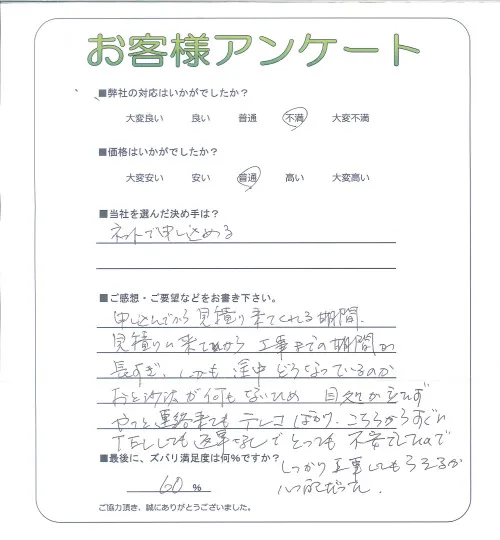 お客様アンケート
■弊社の対応はいかがでしたか？
大変良い 良い 普通 不満 大変不満
■価格はいかがでしたか？
大変安い 安い 普通 高い 大変高い
■当社を選んだ決め手は？
ネットで申し込める
■ご感想・ご要望などをお書き下さい。
申し込んでから見積り来てくれる期間、
見積りに来てから工事までの期間が
長すぎ、しかも途中どうなっているのか
おと沙汰が何もないため 目処がたたず
やっと連絡来ても テレコ ばかり、こちらからすぐに
TELしても返事なしで とっても 不安でしたので
■最後に、ズバリ満足度は何％ですか？
しっかり工事してもらえるか
60 %
心配だった。
ご協力頂き、誠にありがとうございました。